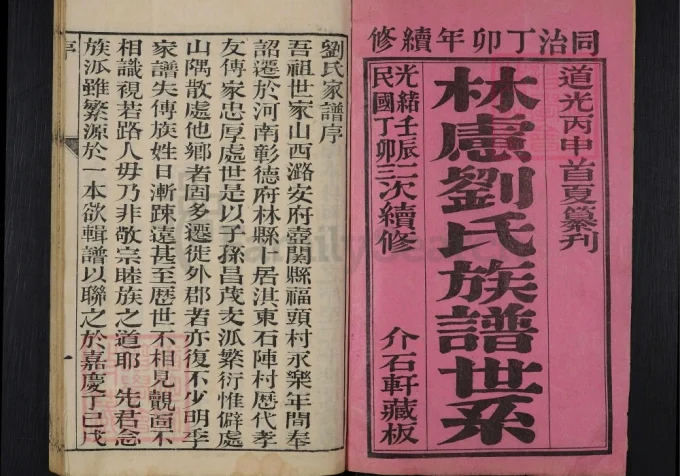 同治丁卯年續修
道光丙申首夏纂刊
林慮劉氏族譜世系
光緒壬辰
民國丁卯三次續修
介石軒藏板
劉氏家譜序
吾祖世家山西潞安府壺關縣福頭村永樂年間奉
詔遷於河南彰德府林縣卜居淇東石陣村歷代孝
友傳家忠厚處世是以子孫昌茂支派繁衍惟僻處
山隅散處他鄉者固多遷徙外郡者亦復不少明季
家譜失傳族姓日漸疎遠甚至歷世不相見覿面不
相識視若路人毋乃非敬宗睦族之道耶 先君念
族派雖繁源於一本欲輯譜以聯之於嘉慶丁巳戊
序
一